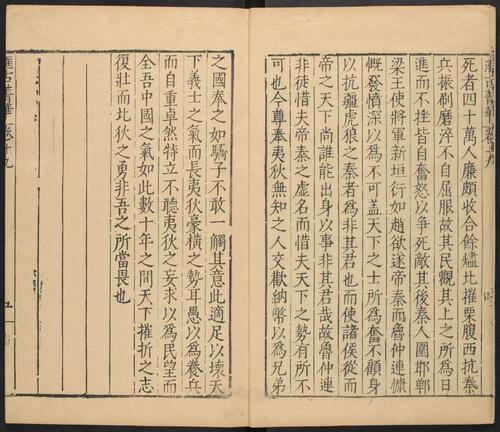 死者四十萬人廉頗收合餘燼北摧栗腹西抗秦
兵振刷磨淬不自屈服故其民觀其上之所為日
進而不挫皆自奮怒以爭死敵其後秦人圍邯鄲
梁王使將軍新垣衍如趙欲遂帝秦而魯仲連慷
慨發憤深以為不可蓋天下之士所為奮不顧身
以抗彊虎狼之秦者為非其君也而使諸侯從而
帝之天下尚誰能出身以事非其君哉故魯仲連
非徒惜夫帝秦之虛名而惜夫天下之勢有所不
可也今尊奉夷狄無知之人交歡納幣以為兄弟
之國奉之如驕子不敢一觸其意此適足以壞天
下義士之氣而長夷狄豪橫之勢耳愚以為養兵
而自重卓然特立不聽夷狄之妄求以為民望而
全吾中國之氣如此數十年之間天下摧折之志
復壯而北狄之勇非吾之所當畏也